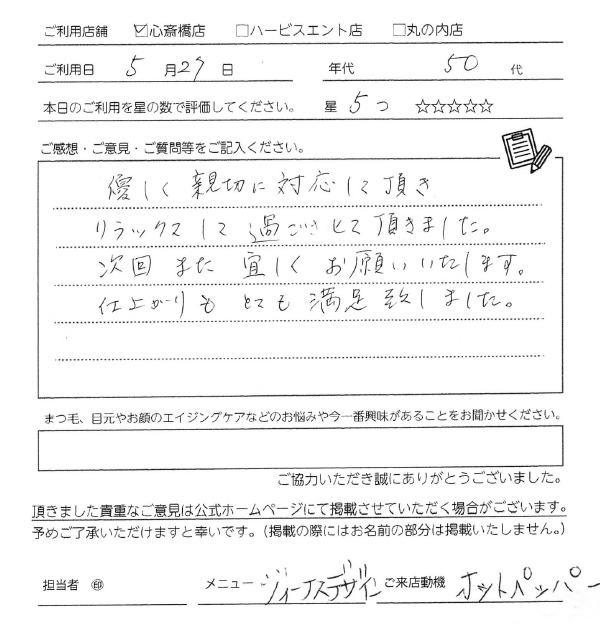 ご利用店舗 ☑心斎橋店 □ハービスエント店 □丸の内店
ご利用日 5月27日 年代 50代
本日のご利用を星の数で評価してください。 星 5つ ☆☆☆☆☆
ご感想・ご意見・ご質問等をご記入ください。
優しく親切に対応して頂き
リラックスして過ごさせて頂きました。
次回また宜しくお願いいたします。
仕上がりもとても満足致しました。
まつ毛、目元やお顔のエイジングケアなどのお悩みや今一番興味があることをお聞かせください。
ご協力いただき誠にありがとうございました。
頂きました貴重なご意見は公式ホームページにて掲載させていただく場合がございます。
予めご了承いただけますと幸いです。（掲載の際にはお名前の部分は掲載いたしません。）
担当者 ㊞ メニュー ジィーナスデザイン ご来店動機 ホットペッパー